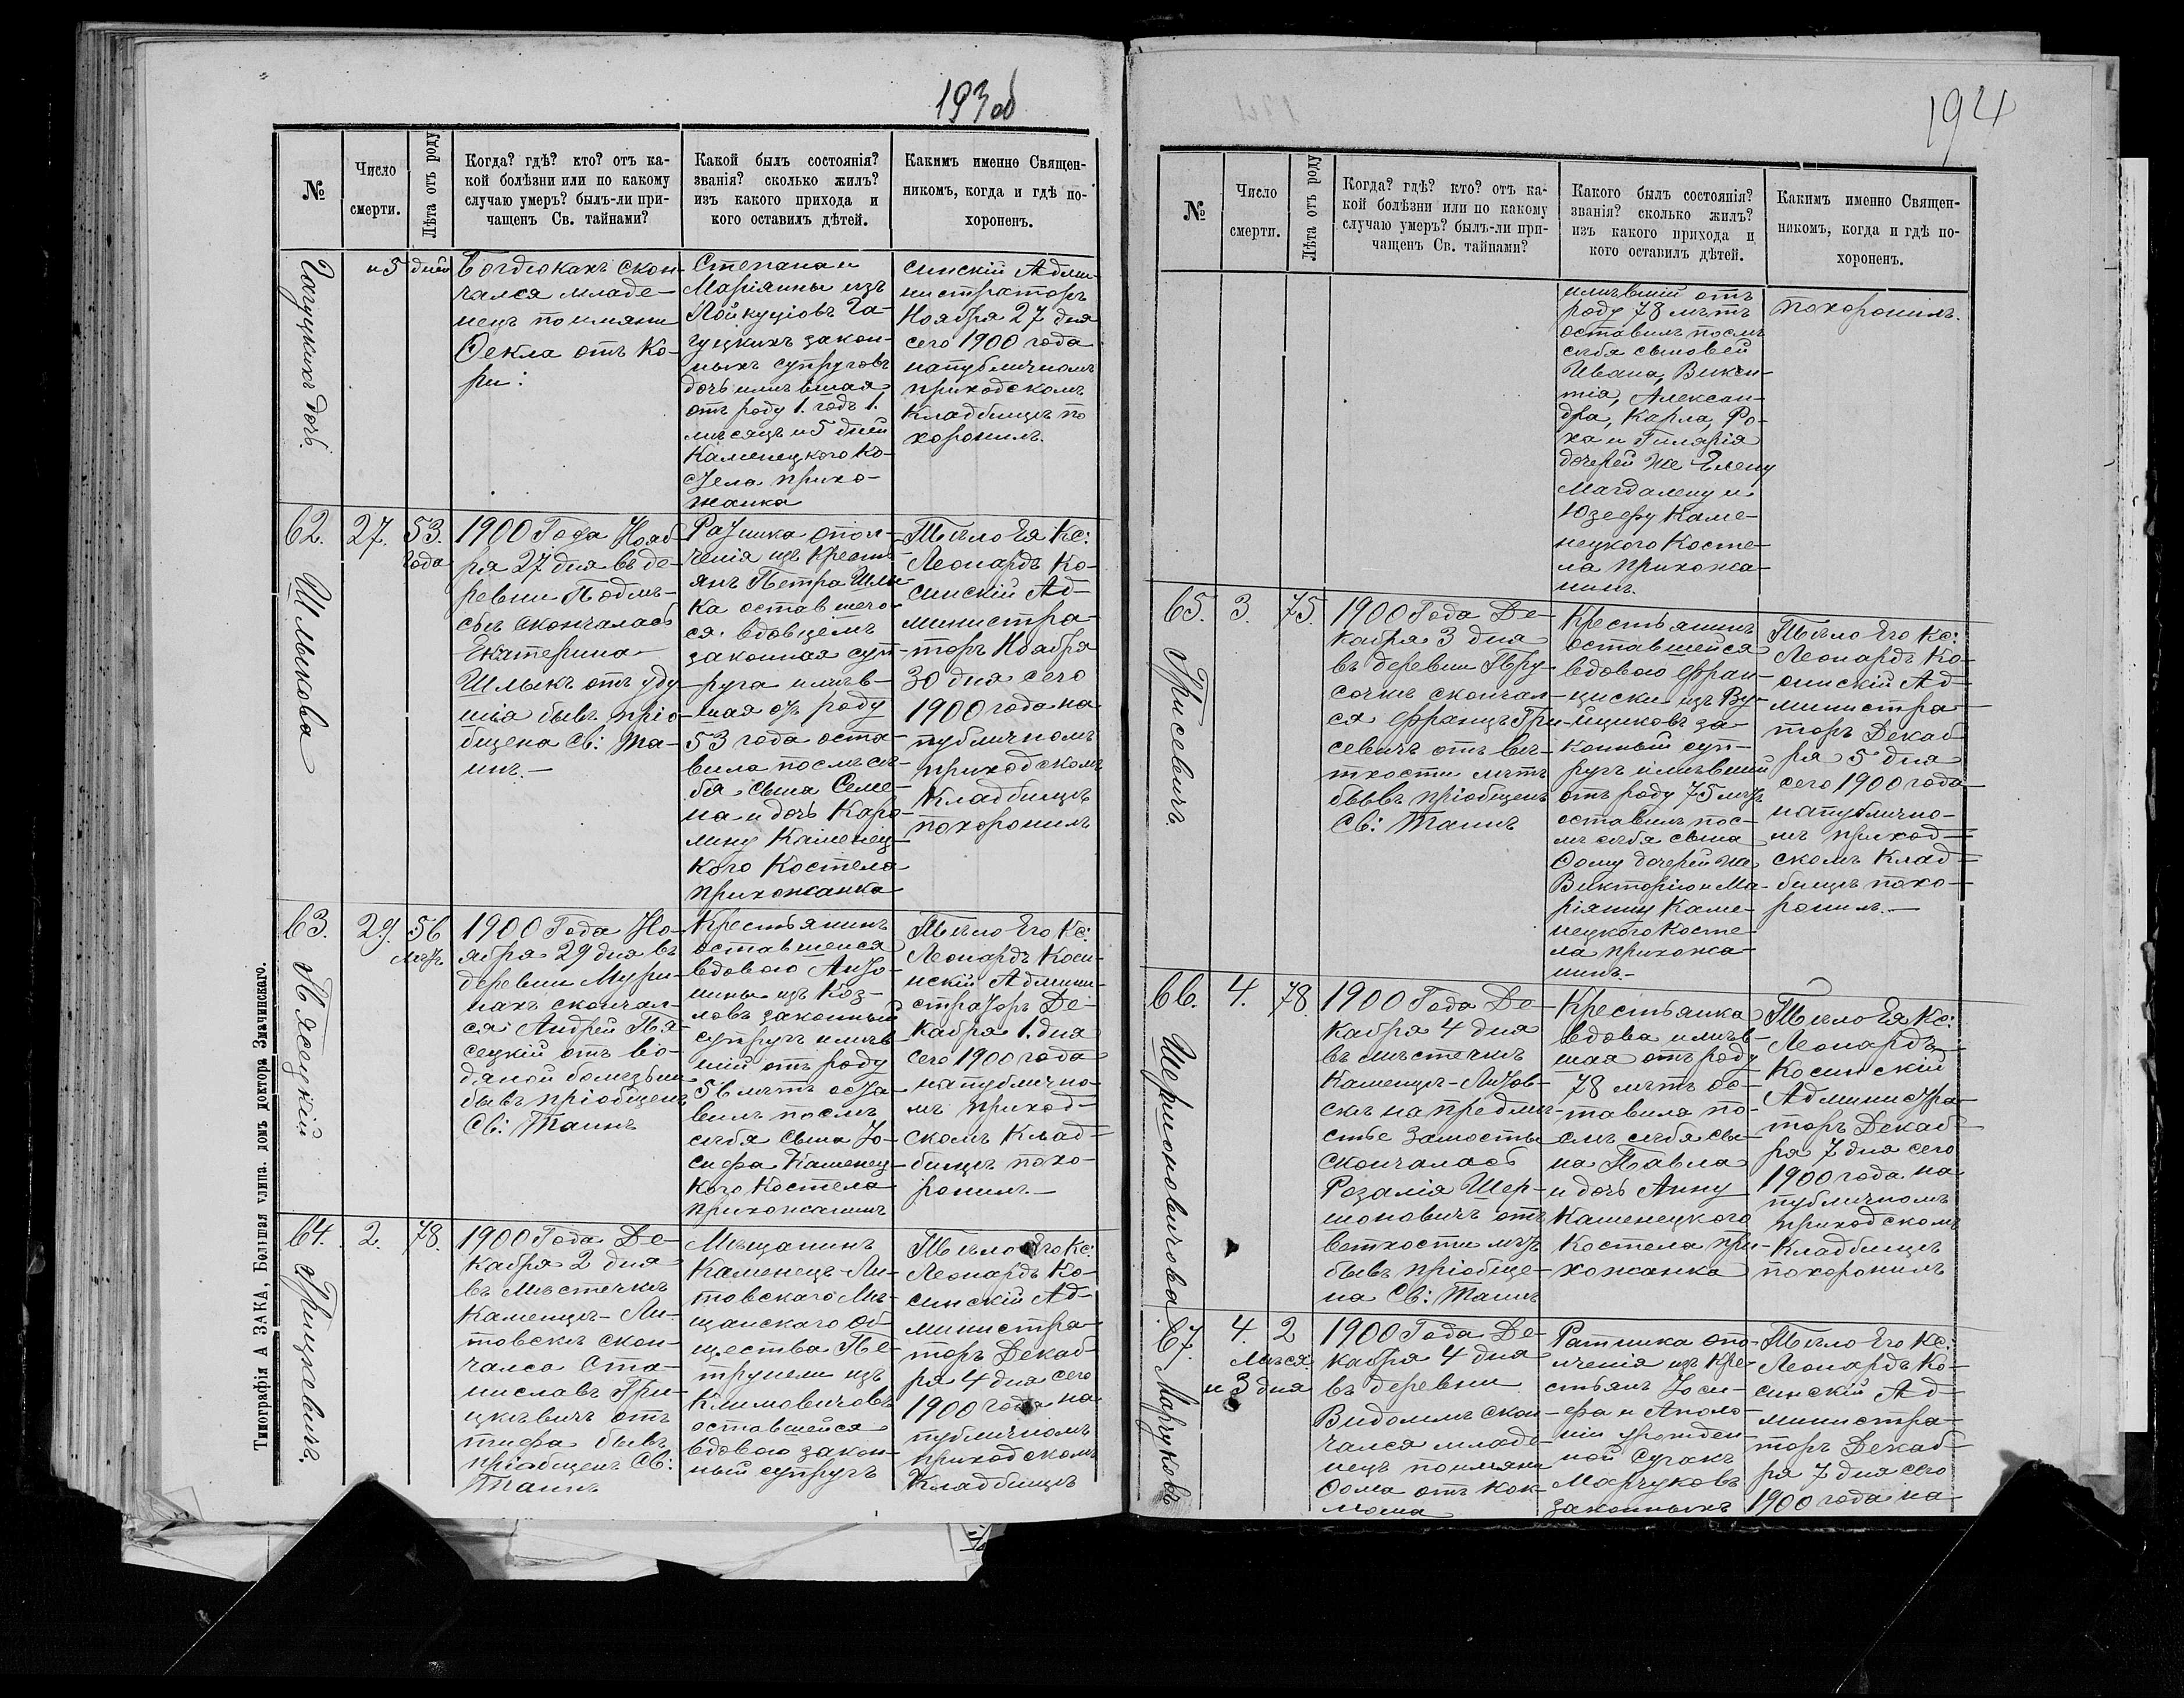 193 об
№
Число
смерти.
Лѣта отъ роду
Когда? гдѣ? кто? отъ ка-
кой болѣзни или по какому
случаю умеръ? былъ-ли при-
чащенъ Св. тайнами?
Какой былъ состоянія?
званія? сколько жилъ?
изъ какого прихода и
кого оставилъ дѣтей.
Какимъ именно Священ-
никомъ, когда и гдѣ по-
хороненъ.
дочь
и 5 дней
Богдюкахъ скон-
чался младе-
нецъ по имяни
Ѳекла отъ Ко-
ри:
Степана и
Маріянны изъ
Пойкуціовъ Га-
гуцкихъ закон-
ныхъ супруговъ
дочь имѣвшая
отъ роду 1. годъ 1.
мѣсяцъ и 5 дней
Каменецкого Ко-
стела прихо-
жанка
синскій Адми-
нистраторъ
Ноября 27 дня
сего 1900 года
на публичномъ
приходскомъ
Кладбищѣ по
хоронилъ.
62.
Шлыкова
27.
53.
года
1900 Года Нояб
ря 27 дня въ де-
ревни Подлѣ-
сьѣ скончалась
Екатерина
Шлыкъ отъ уду
шія бывъ пріо-
бщена Св: Та-
инъ.-
Ратника опол-
ченія изъ крестъ-
янъ Петра Шлы
ка оставшего-
ся вдовцемъ
законная суп-
руга имѣв-
шая отъ роду
53 года оста-
вила послѣ се-
бя сына Семе-
на и дочь Каро-
лину Каменец-
кого Костела
прихожанка
Тѣло Ея Кс:
Леонардъ Ко-
синскій Ад-
министра-
торъ Ноабря
30 дня сего
1900 года на
публичномъ
приходскомъ
Кладбищѣ
похоронилъ
63.
Пясецкій
29.
56
лѣтъ
1900 Года Но-
ября 29 дня въ
деревни Мури-
нахъ скончал-
ся Андрей Пя-
сецкій отъ во-
дяной болезьни
бывъ пріобщенъ
Св: Таинъ
Крестьянинъ
оставшейся
вдовою Анто-
нины изъ Коз-
ловъ законный
супругъ имѣв
шій отъ роду
56 лѣтъ оста-
вилъ послѣ
себя сына Іо-
сифа Каменец-
кого Костела
прихожанинъ
Тѣло Его Кс:
Леонардъ Коси-
нскій Админи-
страторъ Де-
кабря 1. дня
сего 1900 года
на публично-
мъ приход-
скомъ Клад-
бищѣ похо-
ронилъ.-
64.
Грицкевичъ
2.
78.
1900 Года Де-
кабря 2 дня
въ Мѣстечкѣ
Каменцѣ-Ли-
товскѣ скон-
чалса Ста-
ниславъ Гри-
цкевичъ отъ
тифа бывъ
пріобщенъ Св:
Таинъ
Мѣщанинъ
Каменецъ-Ли-
товскаго Мѣ-
щанскаго Об-
щества Пе-
трунели изъ
Климовичовъ
оставшейся
вдовою закон-
ный супругъ
Тѣло Его Кс:
Леонардъ Ко-
синскій Ад-
министра-
торъ Декаб-
ря 4 дня сего
1900 года на
публичномъ
приходскомъ
Кладбищѣ
Типографія А ЗАКА, Большая улица. домъ доктора Змачинскаго.
194
№
Число
смерти.
Лѣта отъ роду
Когда? гдѣ? кто? отъ ка-
кой болѣзни или по какому
случаю умеръ? былъ-ли при-
чащенъ Св. тайнами?
Какого былъ состоянія?
званія? сколько жилъ?
изъ какого прихода и
кого оставилъ дѣтей.
Какимъ именно Священ-
никомъ, когда и гдѣ по-
хороненъ.
имѣвшій отъ
роду 78 лѣтъ
оставилъ послѣ
себя сыновей
Ивана, Викен-
тія, Алексан-
дра, Карла, Ро-
ха и Гилярія
дочерей же Елену
Магдалену и
Юзефу Каме-
нецкого Косте-
ла прихожа-
нинъ.
похоронилъ.
65.
Грисевичъ
3.
75.
1900 Года Де-
кабря 3 дня
въ деревни Пру-
сочкѣ скончал-
ся Францъ Гри-
севичъ отъ ве-
тхости лѣтъ
бывъ пріобщенъ
Св: Таинъ
Крестьянинъ
оставшейся
вдовою Фран-
циски изъ Ву-
йциковъ за-
конный суп-
ругъ имѣвшій
отъ роду 75 лѣтъ
оставилъ пос-
лѣ себя сына
Ѳому дочерей же
Викторію и Ма-
ріянну Каме-
нецкого Косте-
ла прихожа-
нинъ.-
Тѣло Его Кс:
Леонардъ Ко-
синскій Ад-
министра-
торъ Декаб
ря 5 дня
сего 1900 года
на публично-
мъ приход-
скомъ Клад-
бищѣ похо-
ронилъ.-
66.
Шермоновичова
4.
78.
1900 Года Де-
кабря 4 дня
въ мѣстечкѣ
Каменцѣ-Литов-
скѣ на предмѣ-
стье Замосты
скончалась
Розалія Шер-
моновичъ отъ
ветхости лѣтъ
бывъ пріобще-
на Св: Таинъ
Крестьянка
вдова имѣв-
шая отъ роду
78 лѣтъ ос-
тавила по-
слѣ себя сы-
на Павла
и дочь Анну
Каменецкого
Костела при-
хожанка
Тѣло Ея Кс:
Леонардъ
Косинскій
Администра-
торъ Декаб-
ря 7 дня сего
1900 года на
публичномъ
приходскомъ
Кладбищѣ
похоронилъ
67.
Марчуковъ
4.
2
Мѣся.
и 3 дня
1900 Года Де-
кабря 4 дня
въ деревни
Видомлѣ скон-
чался младе-
нецъ по имяни
Ѳома отъ кок-
люша
Ратника опо-
лченія изъ кре-
стьянъ Іоси-
фа и Аполо-
ніи урожден-
ной Сугакъ
Марчуковъ
законныхъ
Тѣло Его Кс:
Леонардъ Ко-
синскій Ад-
министра-
торъ Декаб-
ря 7 дня сего
1900 года на